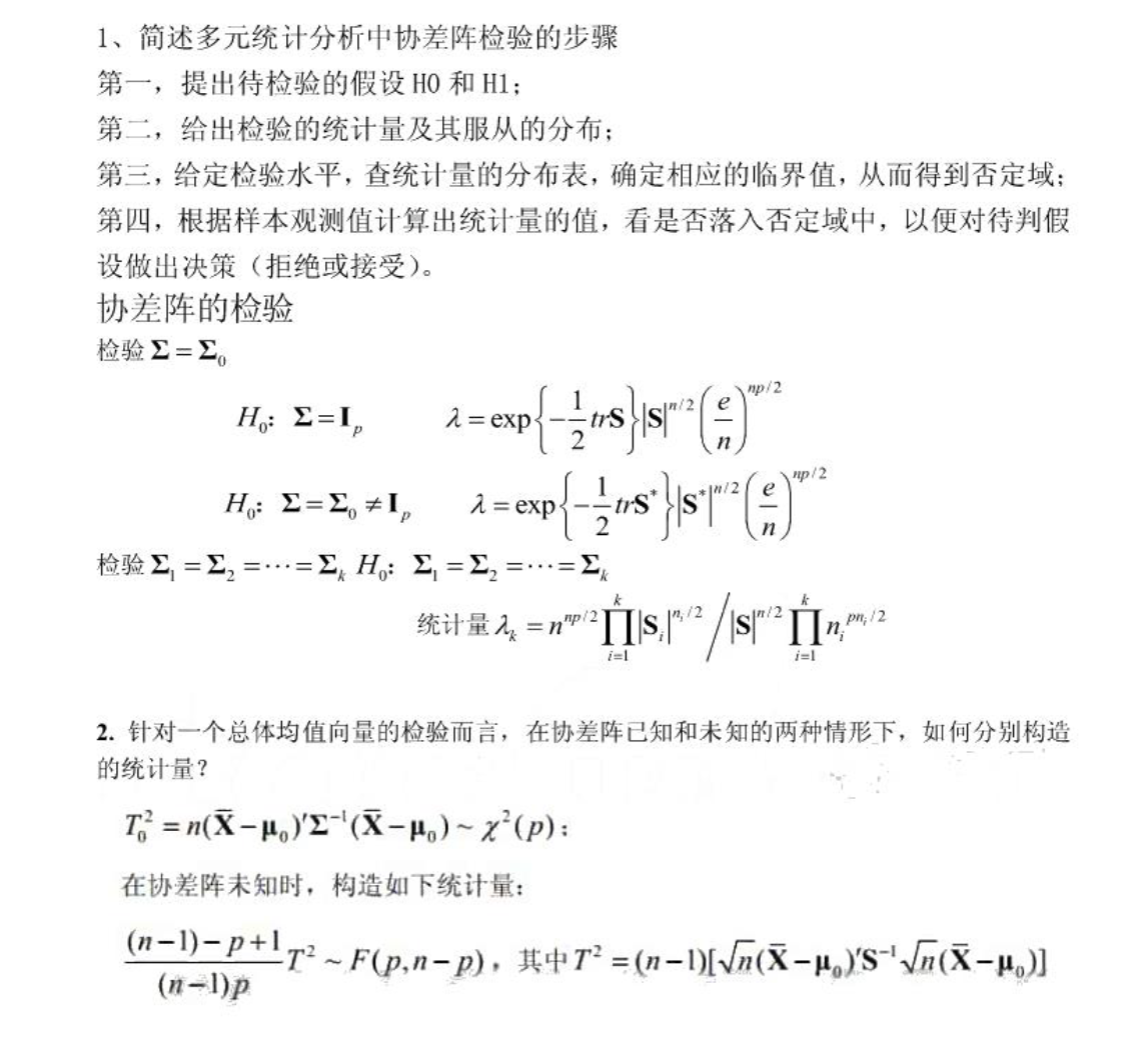 1、简述多元统计分析中协差阵检验的步骤
第一，提出待检验的假设 H0 和 H1；
第二，给出检验的统计量及其服从的分布；
第三，给定检验水平，查统计量的分布表，确定相应的临界值，从而得到否定域；
第四，根据样本观测值计算出统计量的值，看是否落入否定域中，以便对待判假
设做出决策（拒绝或接受）。
协差阵的检验
检验 Σ = Σ₀
H₀: Σ = I_p  λ = exp{-1/2 trS}|S|^{n/2}(e/n)^{np/2}
H₀: Σ = Σ₀ ≠ I_p  λ = exp{-1/2 trS*}|S*|^{n/2}(e/n)^{np/2}
检验 Σ₁ = Σ₂ = ⋯ = Σ_k H₀: Σ₁ = Σ₂ = ⋯ = Σ_k
统计量 λ_k = n^{np/2} ∏_{i=1}^{k} |S_i|^{n_i/2} / |S|^{n/2} ∏_{i=1}^{k} n_i^{pn_i/2}
2. 针对一个总体均值向量的检验而言，在协差阵已知和未知的两种情形下，如何分别构造
的统计量？
T₀² = n(X̄ − μ₀)′Σ⁻¹(X̄ − μ₀) ~ χ²(p)；
在协差阵未知时，构造如下统计量：
((n−1)−p+1)/((n−1)p) T² ~ F(p,n−p)，其中 T² = (n−1)[√n(X̄ − μ₀)′S⁻¹√n(X̄ − μ₀)]